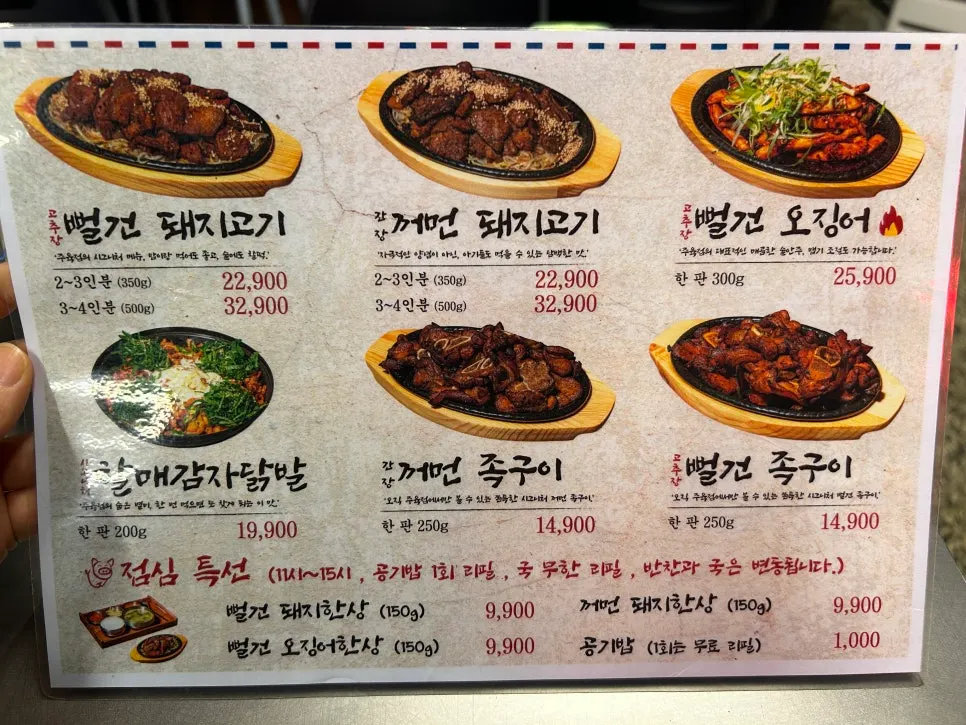 고추장 뻘건 돼지고기
'주육점의 시그니처 메뉴, 밥이랑 먹어도 좋고, 술에도 찰떡.'
2~3인분 (350g) 22,900
3~4인분 (500g) 32,900
간장 꺼먼 돼지고기
'자극적인 양념이 아닌, 아기들도 먹을 수 있는 담백한 맛.'
2~3인분 (350g) 22,900
3~4인분 (500g) 32,900
고추장 뻘건 오징어
'주육점의 대표적인 매콤한 술안주, 맵기 조절도 가능합니다.'
한 판 300g 25,900
할매감자닭발
한 번 먹으면 또 찾게 되는 이 맛'
한 판 200g 19,900
간장 꺼먼 족구이
'오직 주육점에서만 볼 수 있는 쫀득한 시그니처 꺼먼 족구이'
한 판 250g 14,900
고추장 뻘건 족구이
'오직 주육점에서만 볼 수 있는 쫀득한 시그니처 뻘건 족구이'
한 판 250g 14,900
점심 특선 (11시~15시, 공기밥 1회 리필, 국 무한 리필, 반찬과 국은 변동됩니다.)
뻘건 돼지한상 (150g) 9,900
꺼먼 돼지한상 (150g) 9,900
뻘건 오징어한상 (150g) 9,900
공기밥 (1회는 무료 리필) 1,000